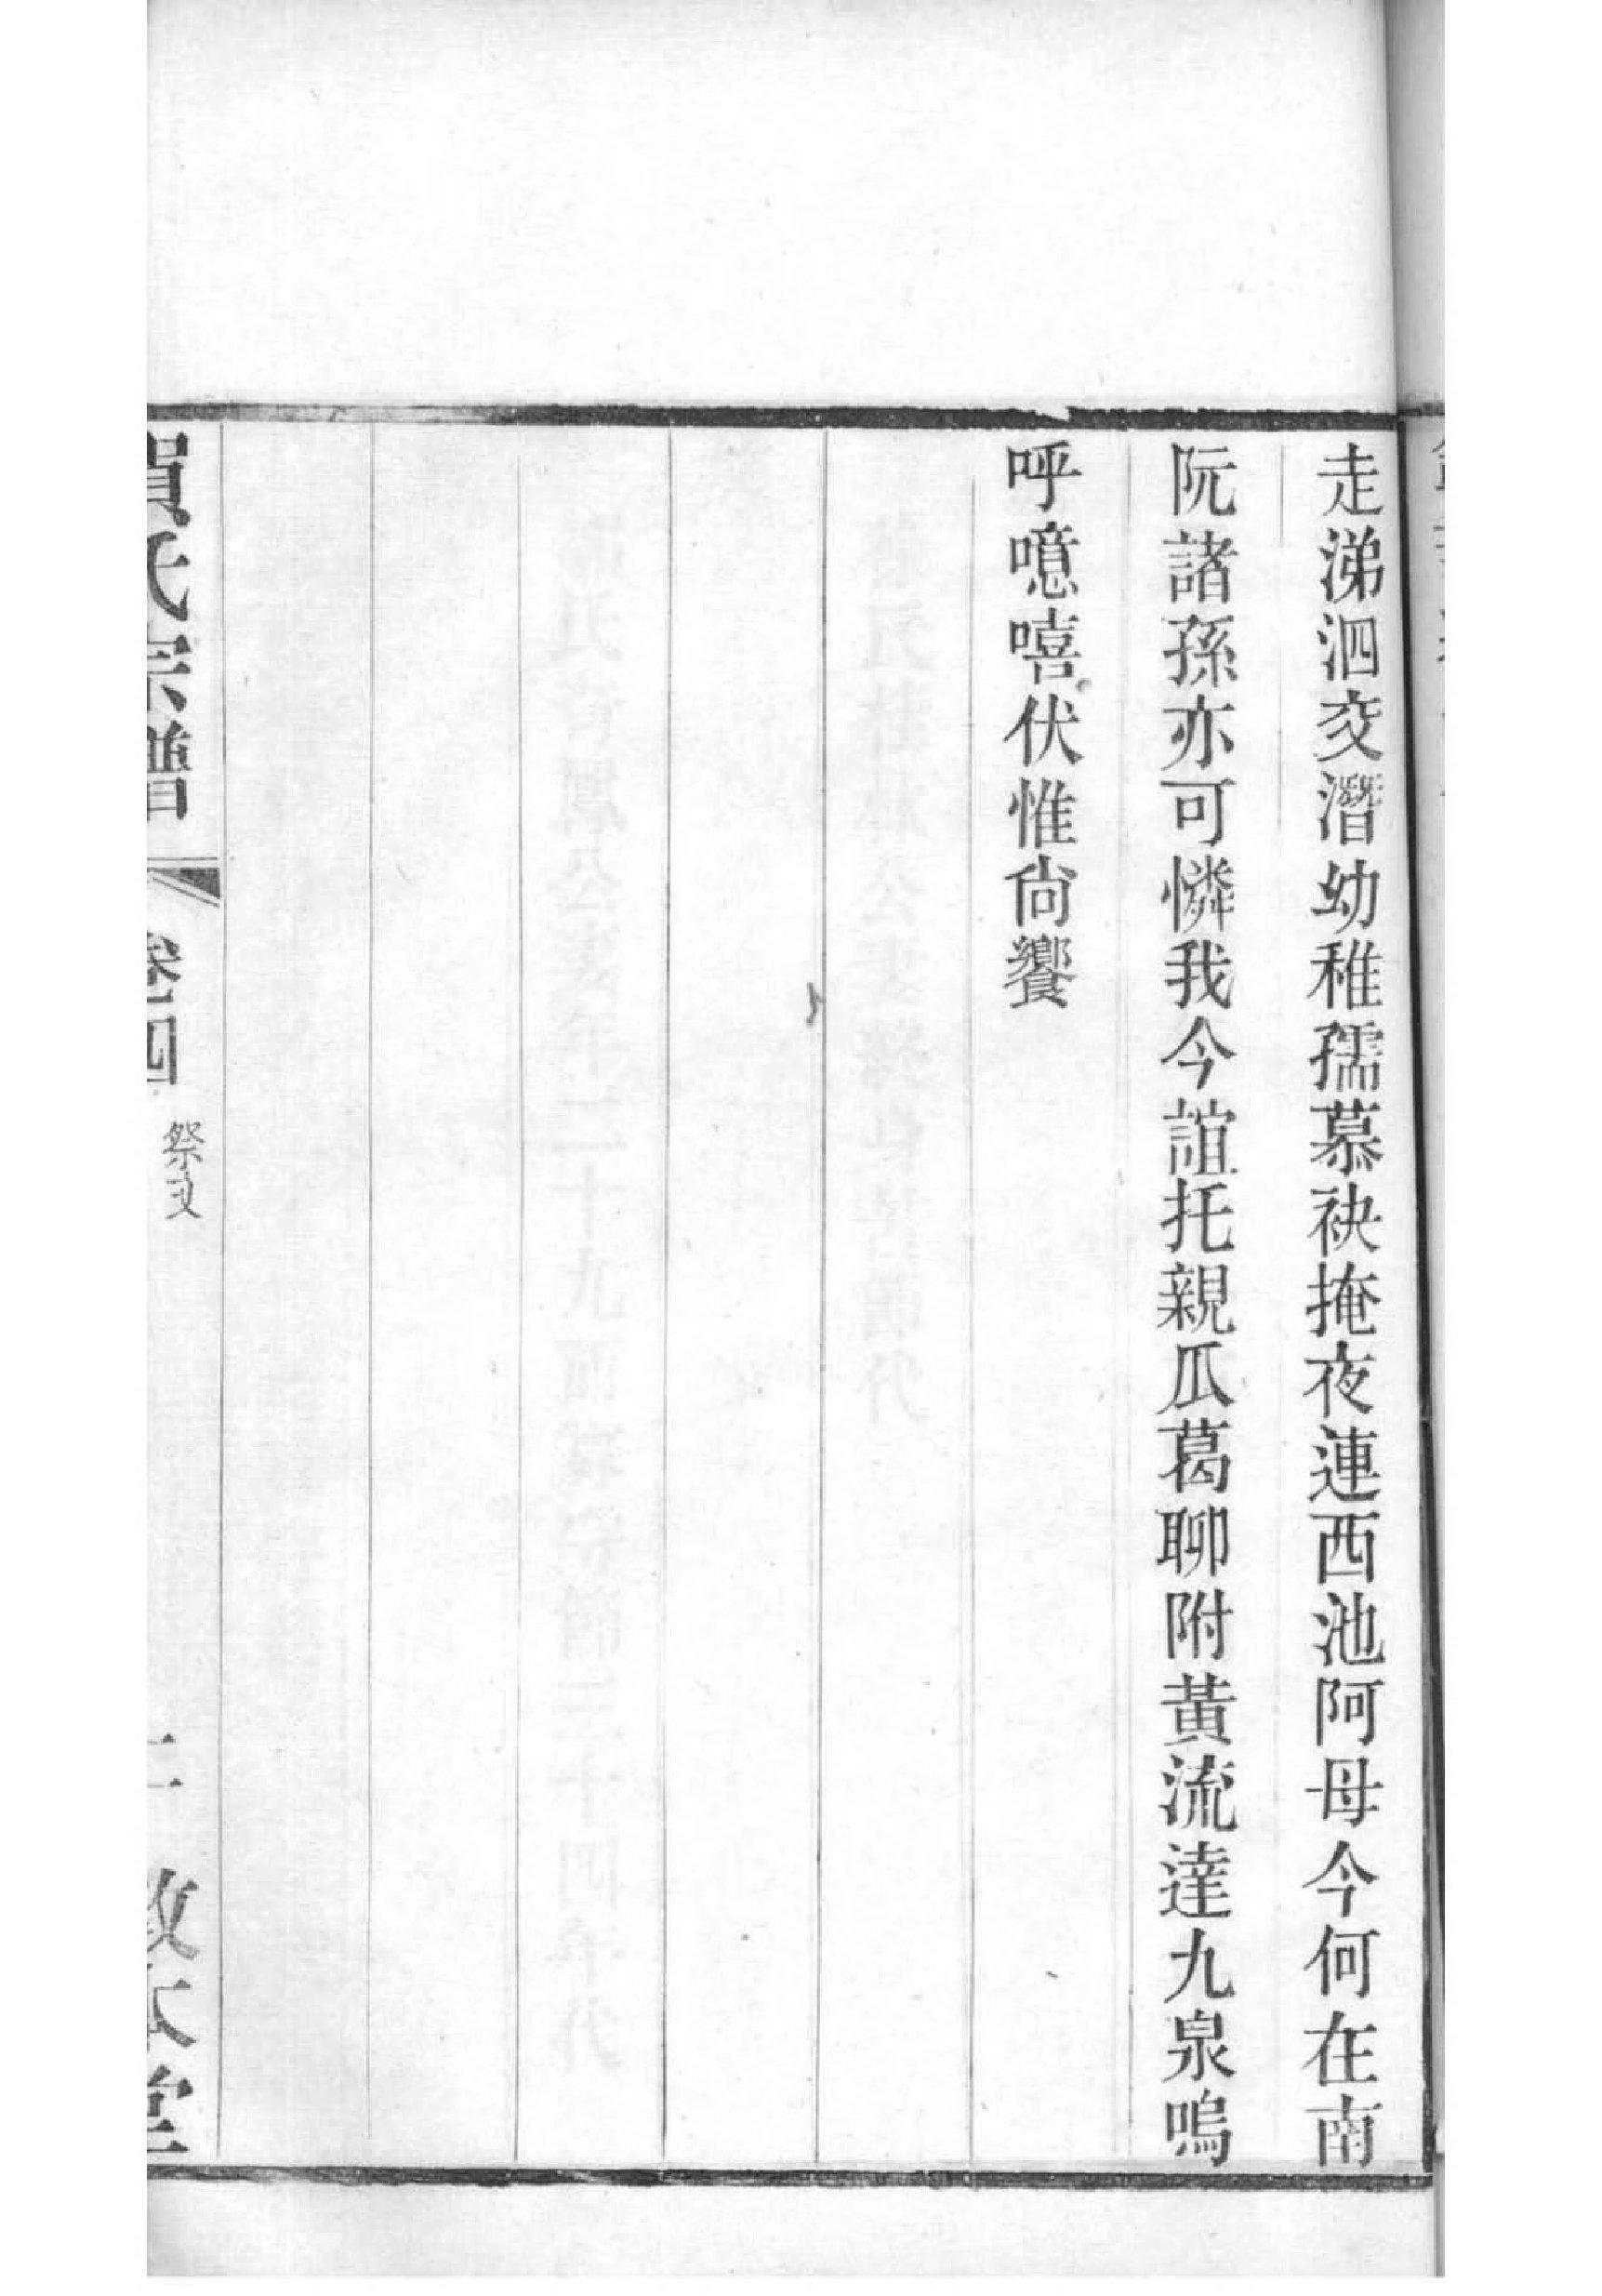 走涕泗交潛幼稚孺慕袂掩夜連西池阿母今何在南
阮諸孫亦可憐我今誼托親瓜葛聊附黃流達九泉嗚
呼噫嘻伏惟尙饗
賀氏宗譜
卷四
祭文
敦本堂